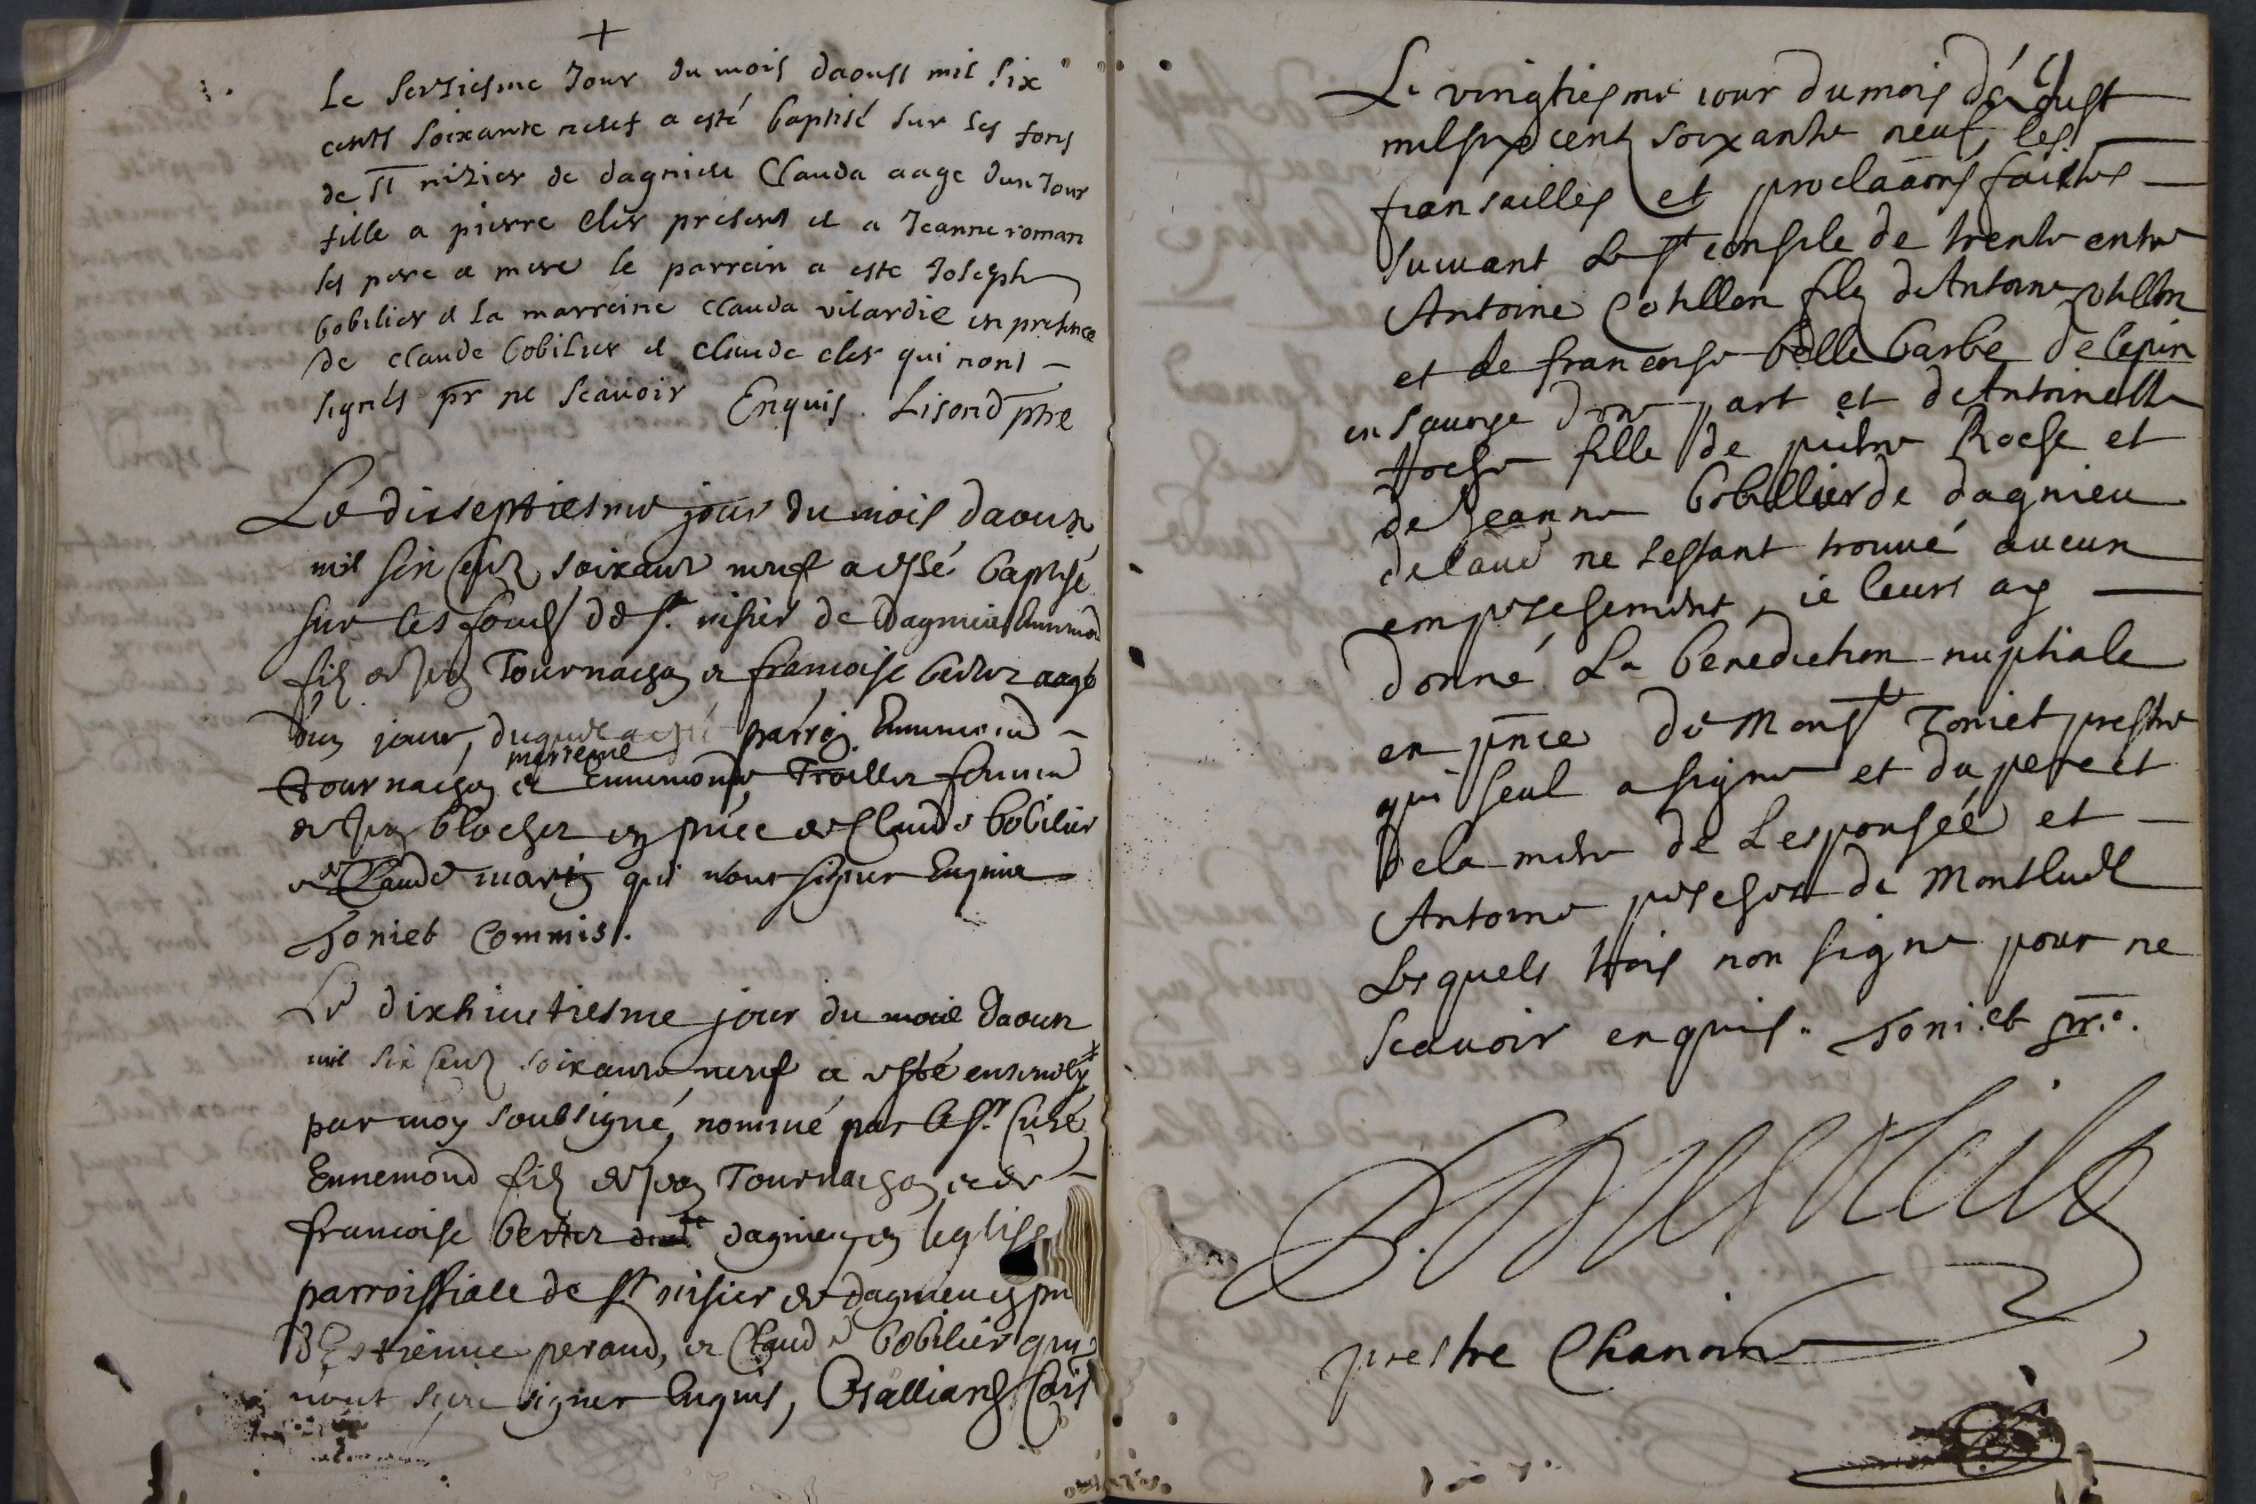 Le seiziesme Jour du mois daoust mil six
cents soixante neuf a esté baptisé sur les fons
de st nizier de dagnieu Clauda aage dun Jour
fille a pierre cler present et a Jeanne roman
ses pere et mere le parrein a este Joseph
bobilier et la marreine clauda vilardie en presence
de claude bobilier et claude cler qui nont
signés pr ne scavoir Enquis. Lisond ptre
Le disseptiesme jour du mois daoust
mil six cens soixante neuf a esté baptisé
sur les fons de st. nisier de Dagnieu Ennemond
fils de Jean Tournachon et francoise better aagé
dun jour, duquel a esté parrein Ennemond
tournachon et marreine Ennemonde Troillet femme
de Jean blochet en pnce de Claude bobilier
et Claude martin qui nont signer Enquis
Joniet Commis.
Le dixhuictiesme jour du mois daoust
mil six cens soixante neuf a esté ensevely
par moy soubsigné, nommé par le sr. Curé
Ennemond fils de Jean Tournachon et de
francoise better dagnieu en leglise
parroissiale de st nisier de dagnieu en pn
D'Estienne peraud, et Claude bobilier qui
nont sceu signer Enquis,
Le vingtiesme jour du mois d'Aoust
mil six cent soixante neuf, les
fiansailles et proclaâons faictes
suivant le st consile de trente entre
Antoine Cotillon fils de Antoine Cotillon
et de francoise belle barbe de lepin
en savoye dune part et de Antoinette
Roche fille de pierre Roche et
de Jeanne bobillier de dagnieu
delautre ne sestant trouvé aucun
empeschement, ie leurs ay
donné La benediction nuptiale
en pnce de Monsr Joniet prestre
qui seul a signe et du pere et
de la mere de Lespousée et
Antoine peschet de Montluel
Lesquels trois non signe pour ne
scavoir enquis. Joniet ptre.
prestre Chanoine